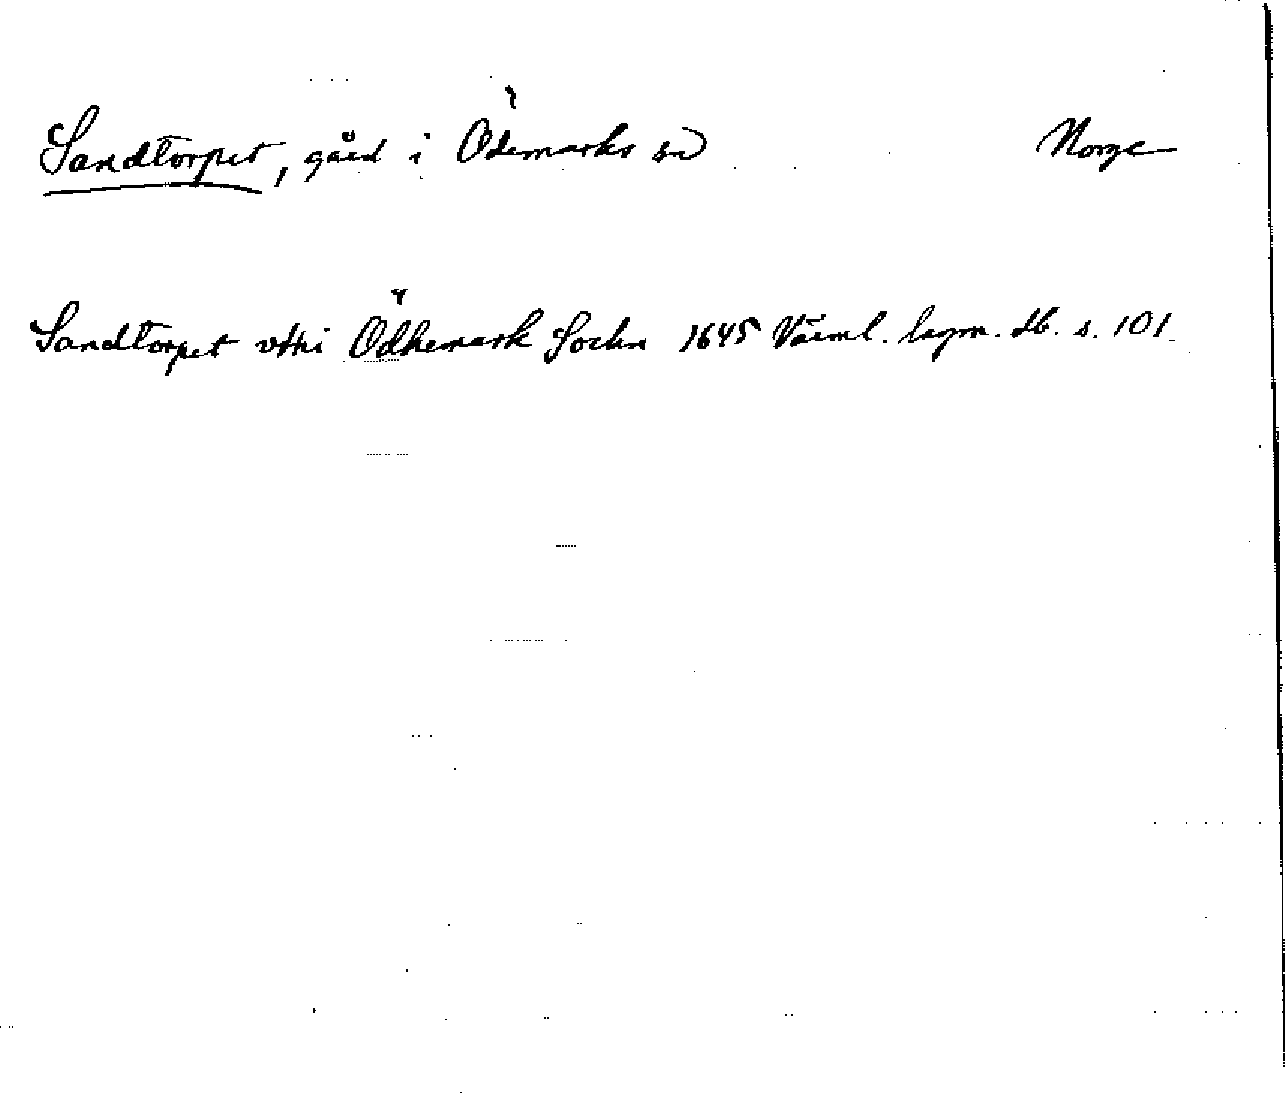 Sandtorpet, gård i Ödemarks sn Norge
Sandtorpet vthi Ödhemark Sochn 1645 Värml. lagm. db. s. 101